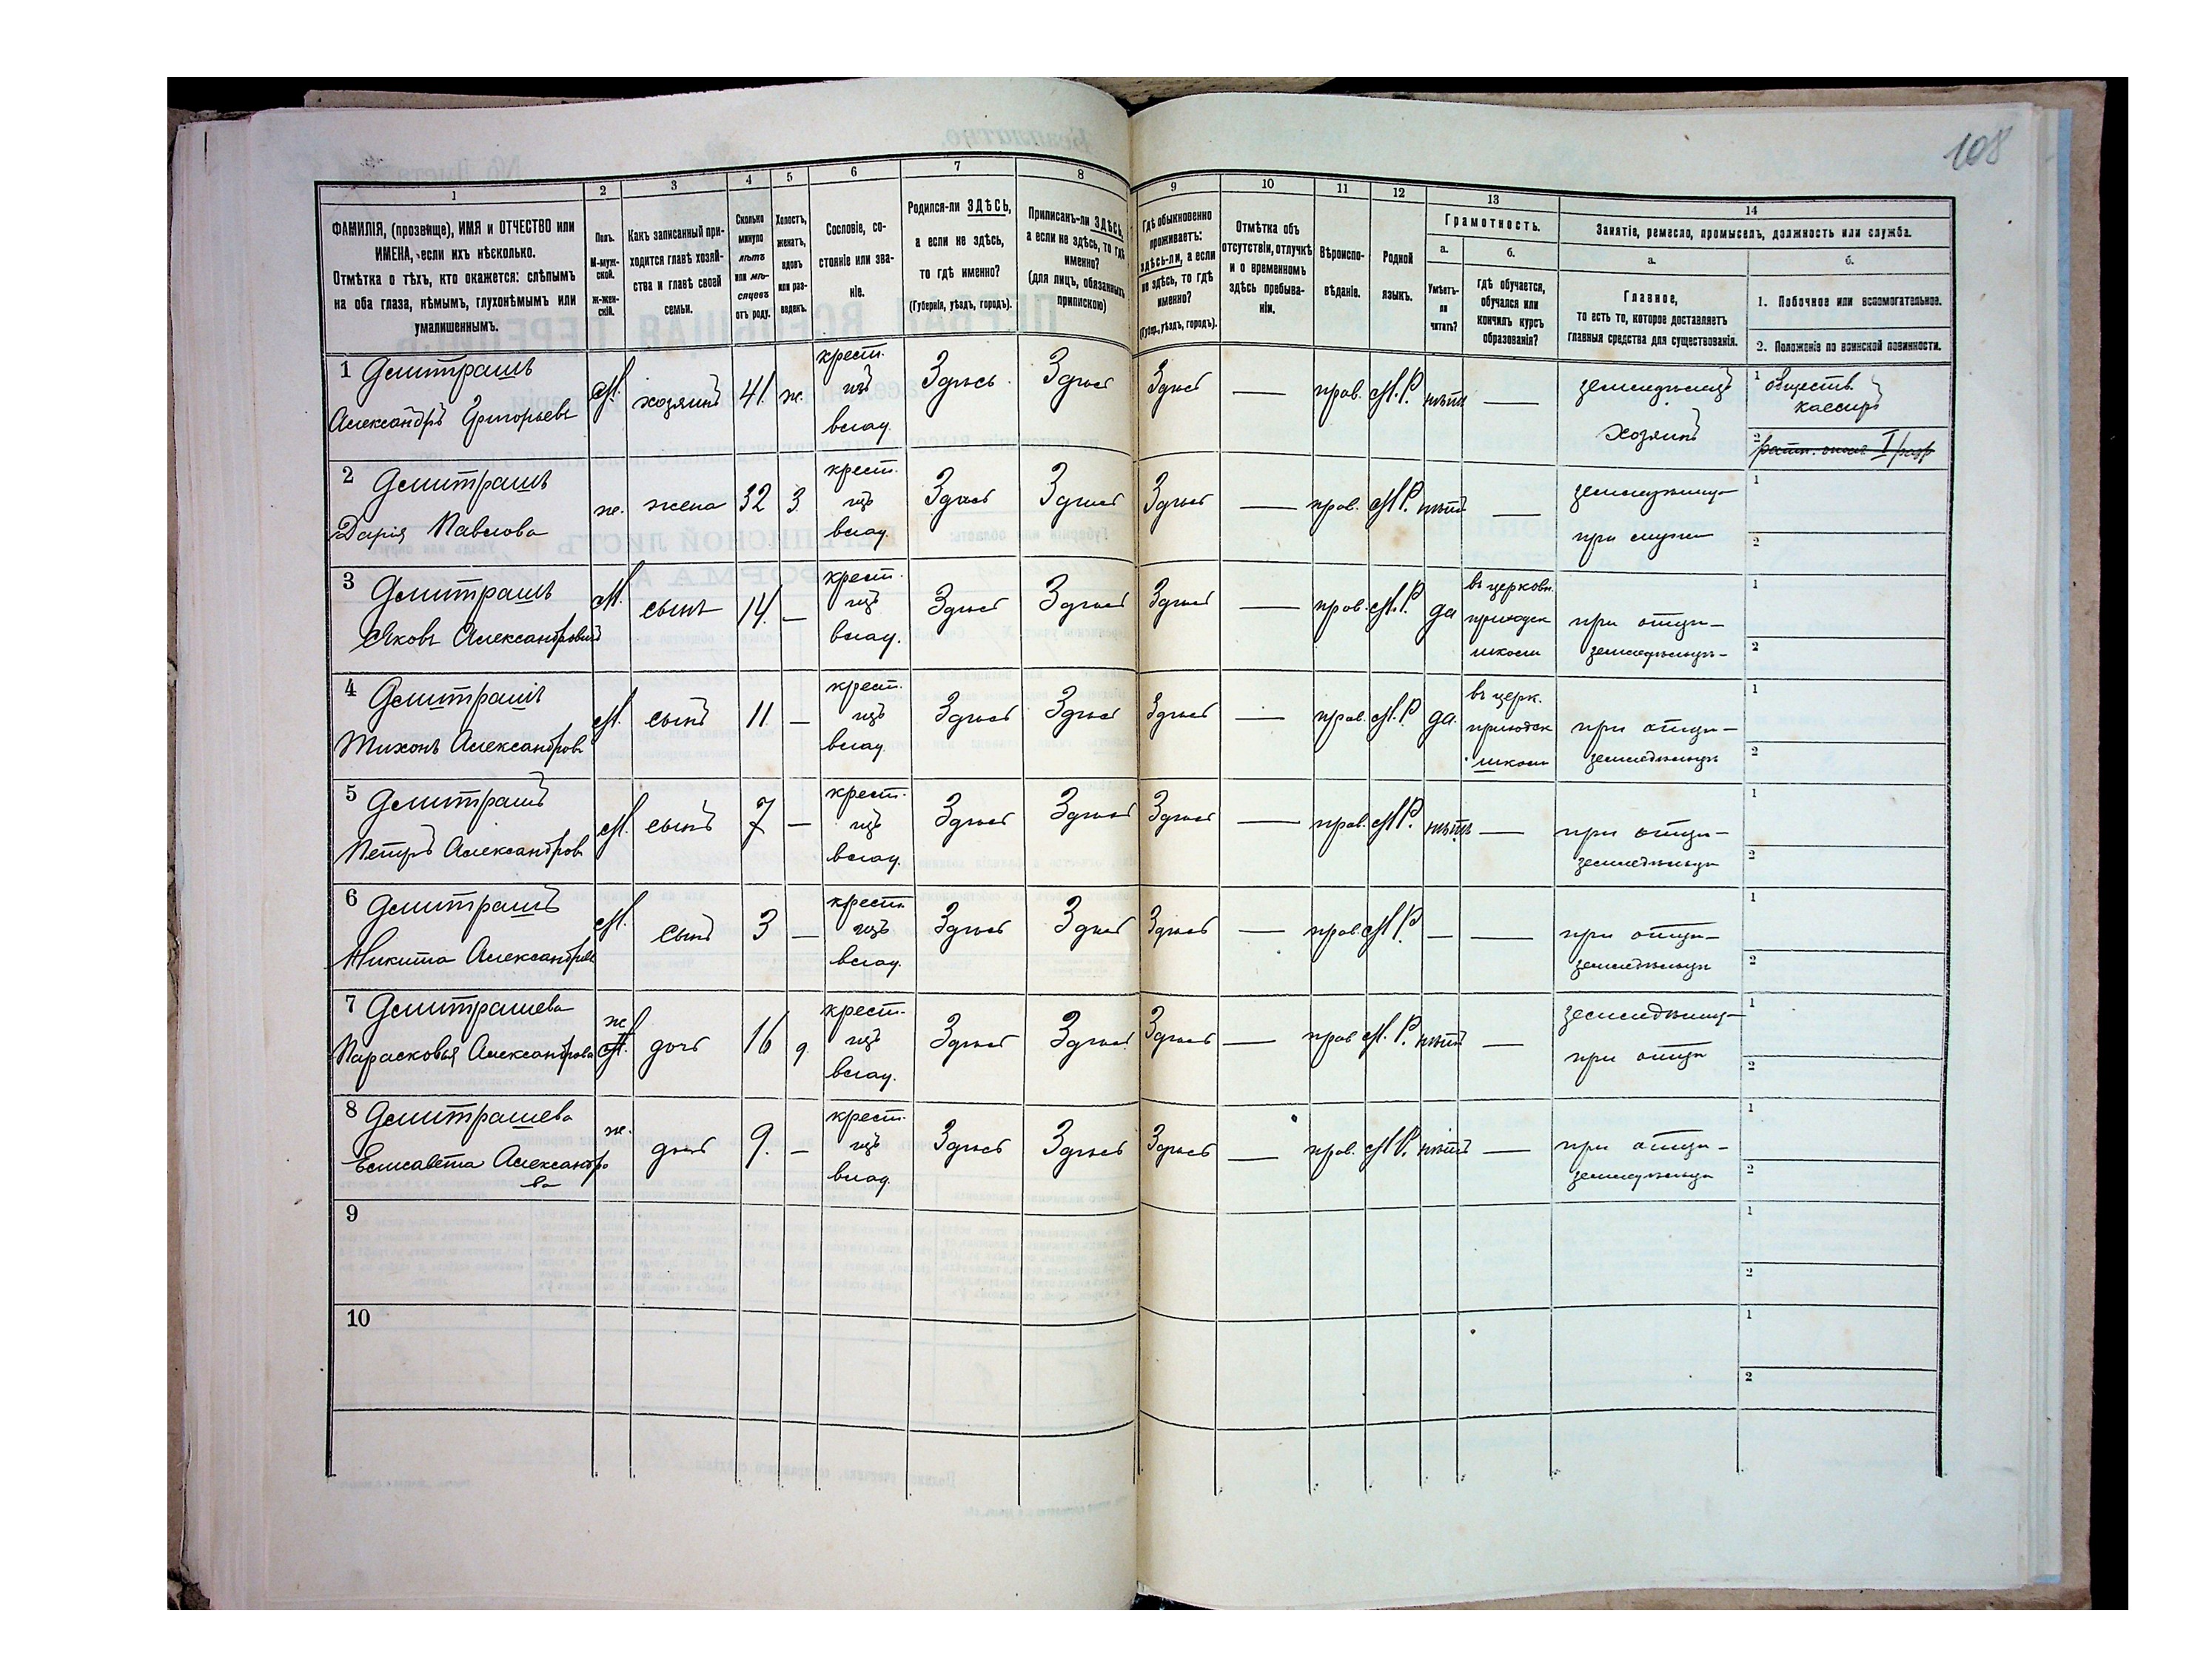 108
1
2
3
4
5
6
7
8
9
10
11
12
13
14
ФАМИЛІЯ, (прозвище), ИМЯ и ОТЧЕСТВО или
ИМЕНА, если ихъ нѣсколько.
Отмѣтка о тѣхъ, кто окажется: слѣпымъ
на оба глаза, нѣмымъ, глухонѣмымъ или
умалишеннымъ.
Полъ.
М-муж-
ской.
Ж-жен-
скій.
Какъ записанный при-
ходится главѣ хозяй-
ства и главѣ своей
семьи.
Сколько
минуло
лѣтъ
или мѣ-
сяцевъ
отъ роду.
Холостъ,
женатъ,
вдовъ
или раз-
веденъ.
Сословіе, со-
стояніе или зва-
ніе.
Родился-ли ЗДѢСЬ,
а если не здѣсь,
то гдѣ именно?
(Губернія, уѣздъ, городъ).
Приписанъ-ли ЗДѢСЬ,
а если не здѣсь, то гдѣ
именно?
(для лицъ, обязанныхъ
припискою)
Гдѣ обыкновенно
проживаетъ:
здѣсь-ли, а если
не здѣсь, то гдѣ
именно?
(Губер., уѣздъ, городъ).
Отмѣтка объ
отсутствіи, отлучкѣ
и о временномъ
здѣсь пребыва-
ніи.
Вѣроиспо-
вѣданіе.
Родной
языкъ.
Грамотность.
а.
Умѣетъ-
ли
читать?
б.
гдѣ обучается,
обучался или
кончилъ курсъ
образованія?
Занятіе, ремесло, промыселъ, должность или служба.
а.
Главное,
то есть то, которое доставляетъ
главныя средства для существованія.
б.
1. Побочное или вспомогательное.
2. Положеніе по воинской повинности.
1 Демитрашъ
Александръ Григорьевъ
М. хозяинъ 41. ж.
крест.
изъ
влад.
Здѣсь Здѣсь Здѣсь — прав. М.Р. нѣтъ —
земледѣлецъ
хозяинъ
1 обществ.
кассиръ
2 ратн. опол. I разр
2 Демитрашъ
Дарія Павлова
ж. жена 32 З.
крест.
изъ
влад.
Здѣсь Здѣсь Здѣсь — прав. М.Р. нѣтъ —
при мужѣ
1
2
3 Демитрашъ
Яковъ Александровичъ
М. сынъ 14. —
крест.
изъ
влад.
Здѣсь Здѣсь Здѣсь — прав. М.Р. да
въ церковн.
приходск
школѣ
при отцѣ —
земледѣльцѣ
1
2
4 Демитрашъ
Тихонъ Александровъ
М. сынъ 11 —
крест.
изъ
влад.
Здѣсь Здѣсь Здѣсь — прав. М.Р. да.
въ церк.
приходск
школѣ
при отцѣ —
земледѣльцѣ
1
2
5 Демитрашъ
Петръ Александров
М. сынъ 7 —
крест.
изъ
влад.
Здѣсь Здѣсь Здѣсь — прав. М.Р. нѣтъ —
при отцѣ —
земледѣльцѣ
1
2
6 Демитрашъ
Никита Александров
М. сынъ 3 —
крест.
изъ
влад.
Здѣсь Здѣсь Здѣсь — прав. М.Р. — —
при отцѣ —
земледѣльцѣ
1
2
7 Демитрашева
Парасковья Александрова
ж дочь 16 д.
крест.
изъ
влад.
Здѣсь Здѣсь Здѣсь — прав. М.Р. нѣтъ —
при отцѣ
1
2
8 Демитрашева
Елисавета Александро
ва
ж. дочь 9. —
крест.
изъ
влад.
Здѣсь Здѣсь Здѣсь — прав. М.Р. нѣтъ —
при отцѣ —
земледѣльцѣ
1
2
9
1
2
10
1
2